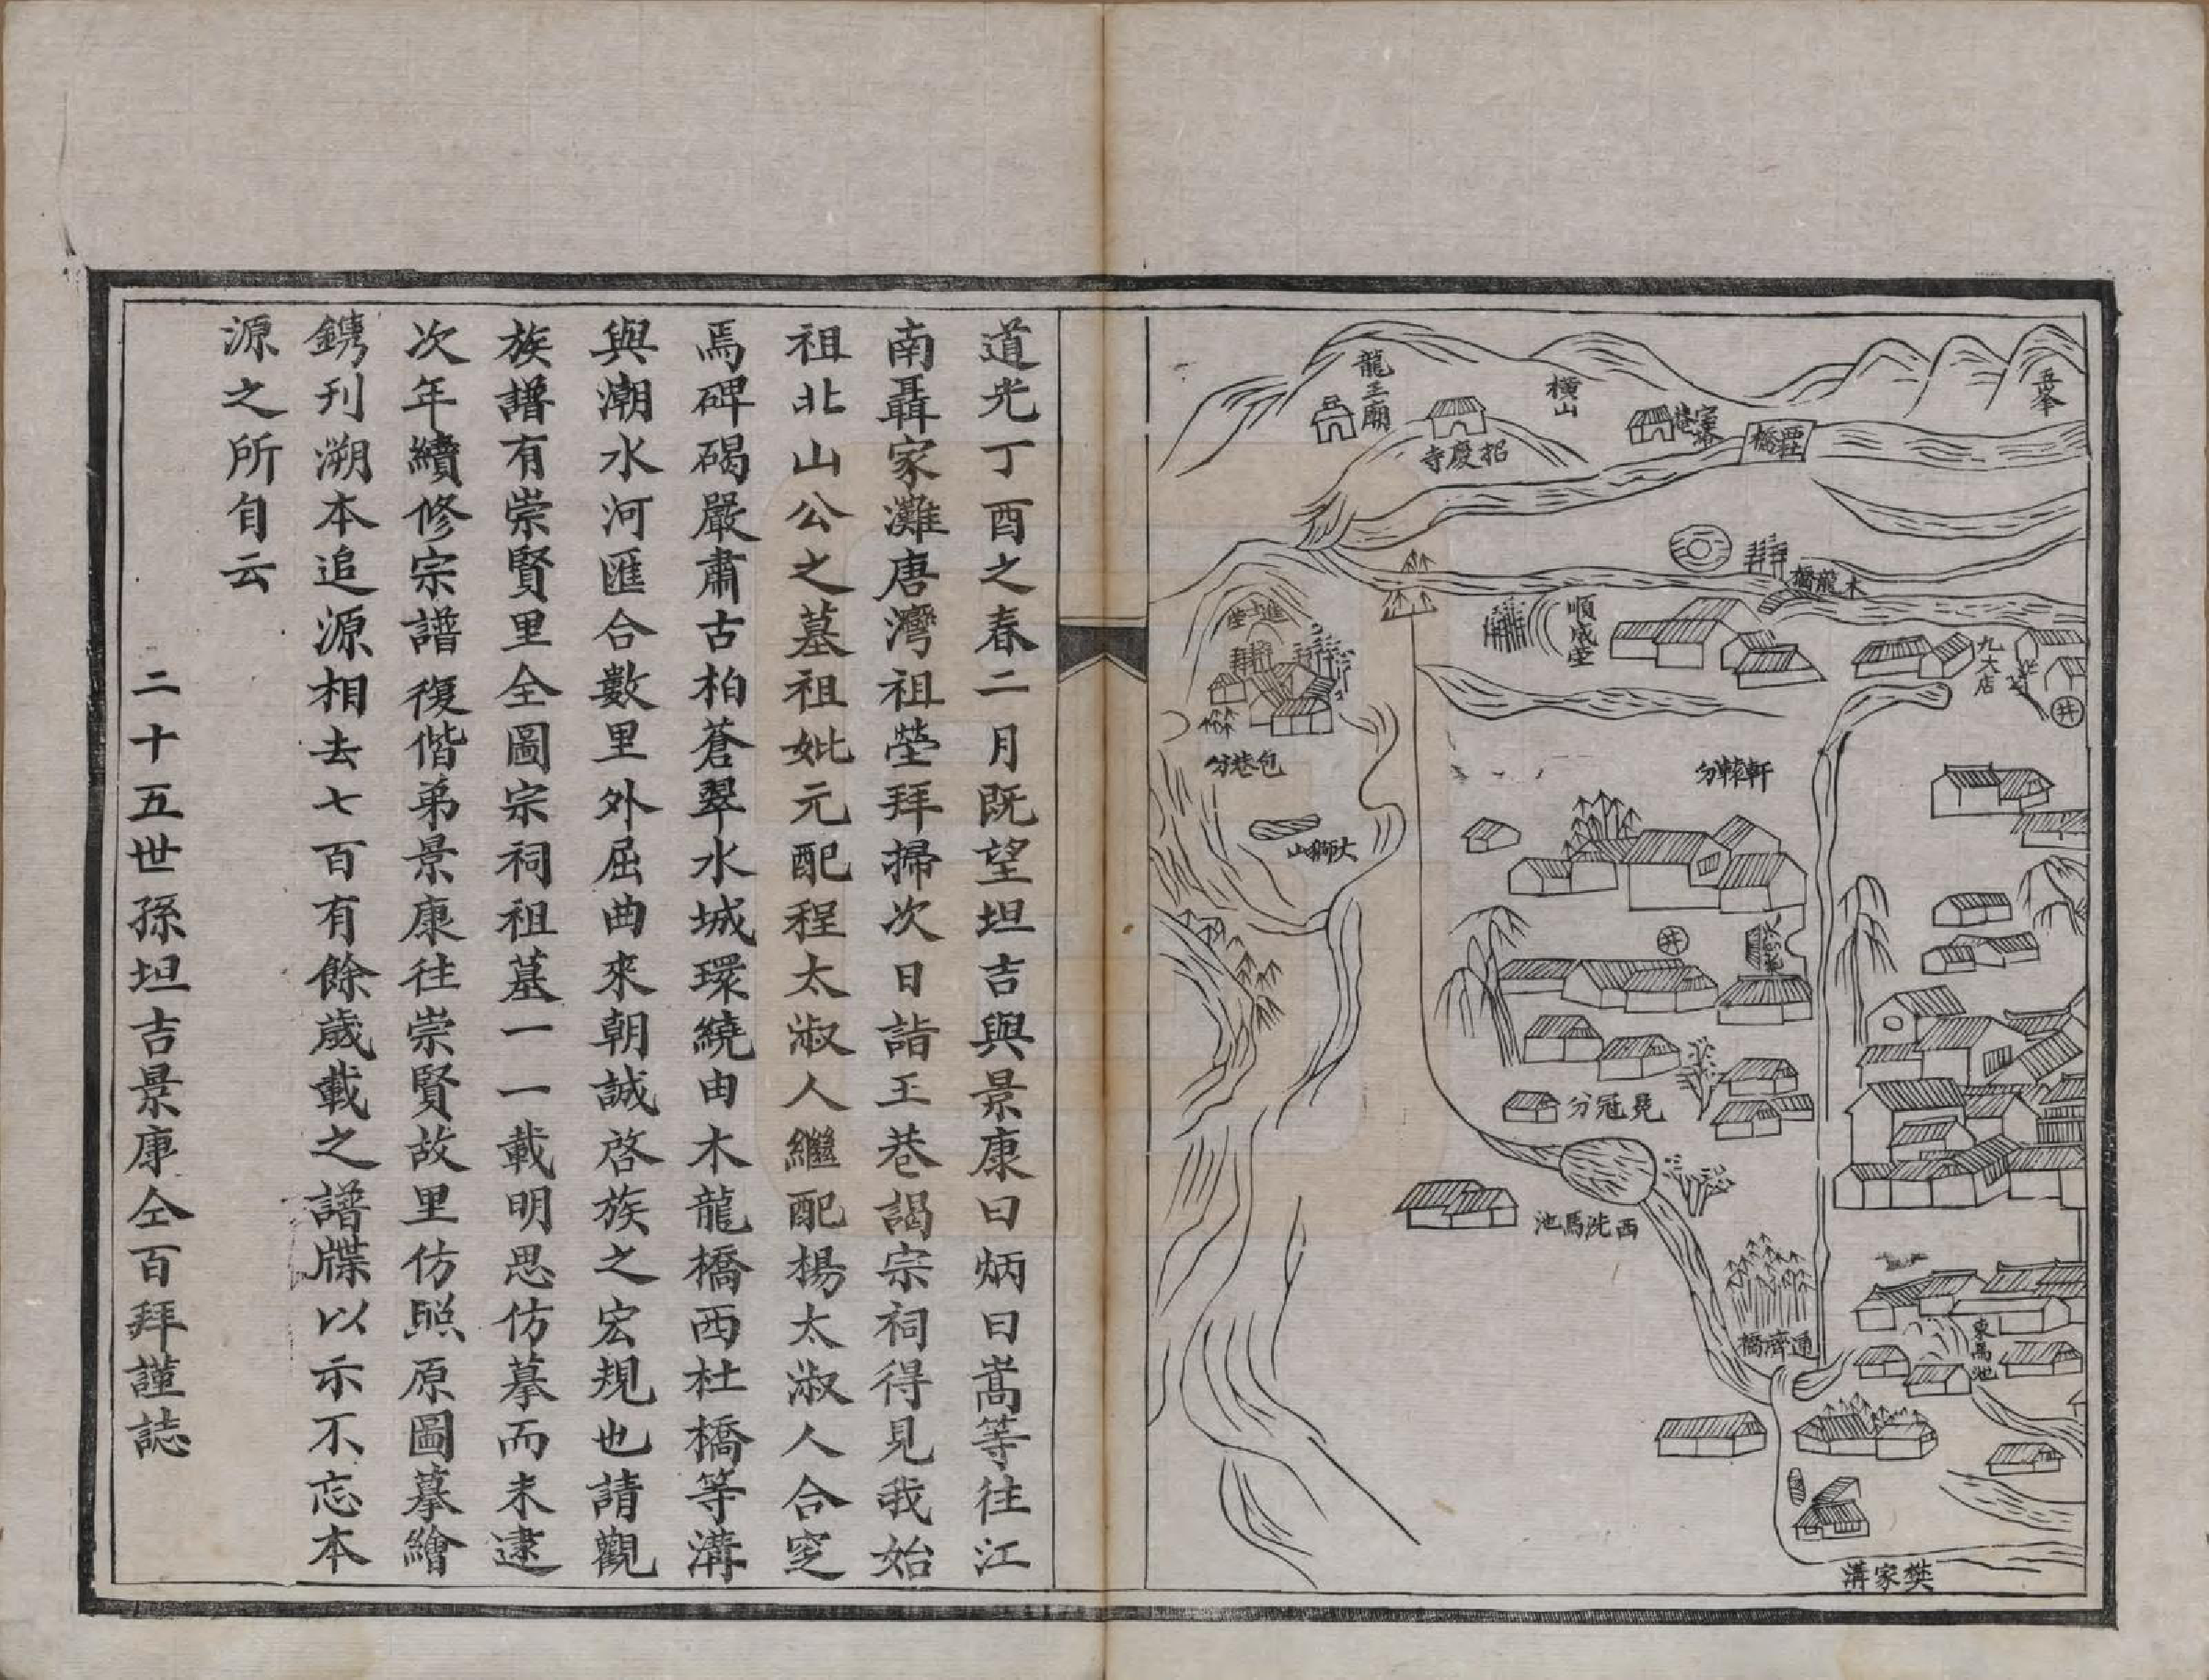 五峯
西社橋
橫山
龍王廟
招慶寺
木龍橋
順成堂
九大店
井
進士塋
包巷分
大獅山
軒轅分
井
冕冠分
西洗馬池
通濟橋
東馬池
樊家溝
道光丁酉之春二月既望坦吉與景康曰炳曰嵩等往江
南聶家灘唐灣祖塋拜掃次日詣王巷謁宗祠得見我始
祖北山公之墓祖妣元配程太淑人繼配楊太淑人合窆
焉碑碣嚴肅古柏蒼翠水城環繞由木龍橋西杜橋等溝
與潮水河匯合數里外屈曲來朝誠啓族之宏規也請觀
族譜有崇賢里全圖宗祠祖墓一一載明思仿摹而未逮
次年續修宗譜復偕弟景康往崇賢故里仿照原圖摹繪
鐫刊溯本追源相去七百有餘歲載之譜牒以示不忘本
源之所自云
二十五世孫坦吉景康仝百拜謹誌